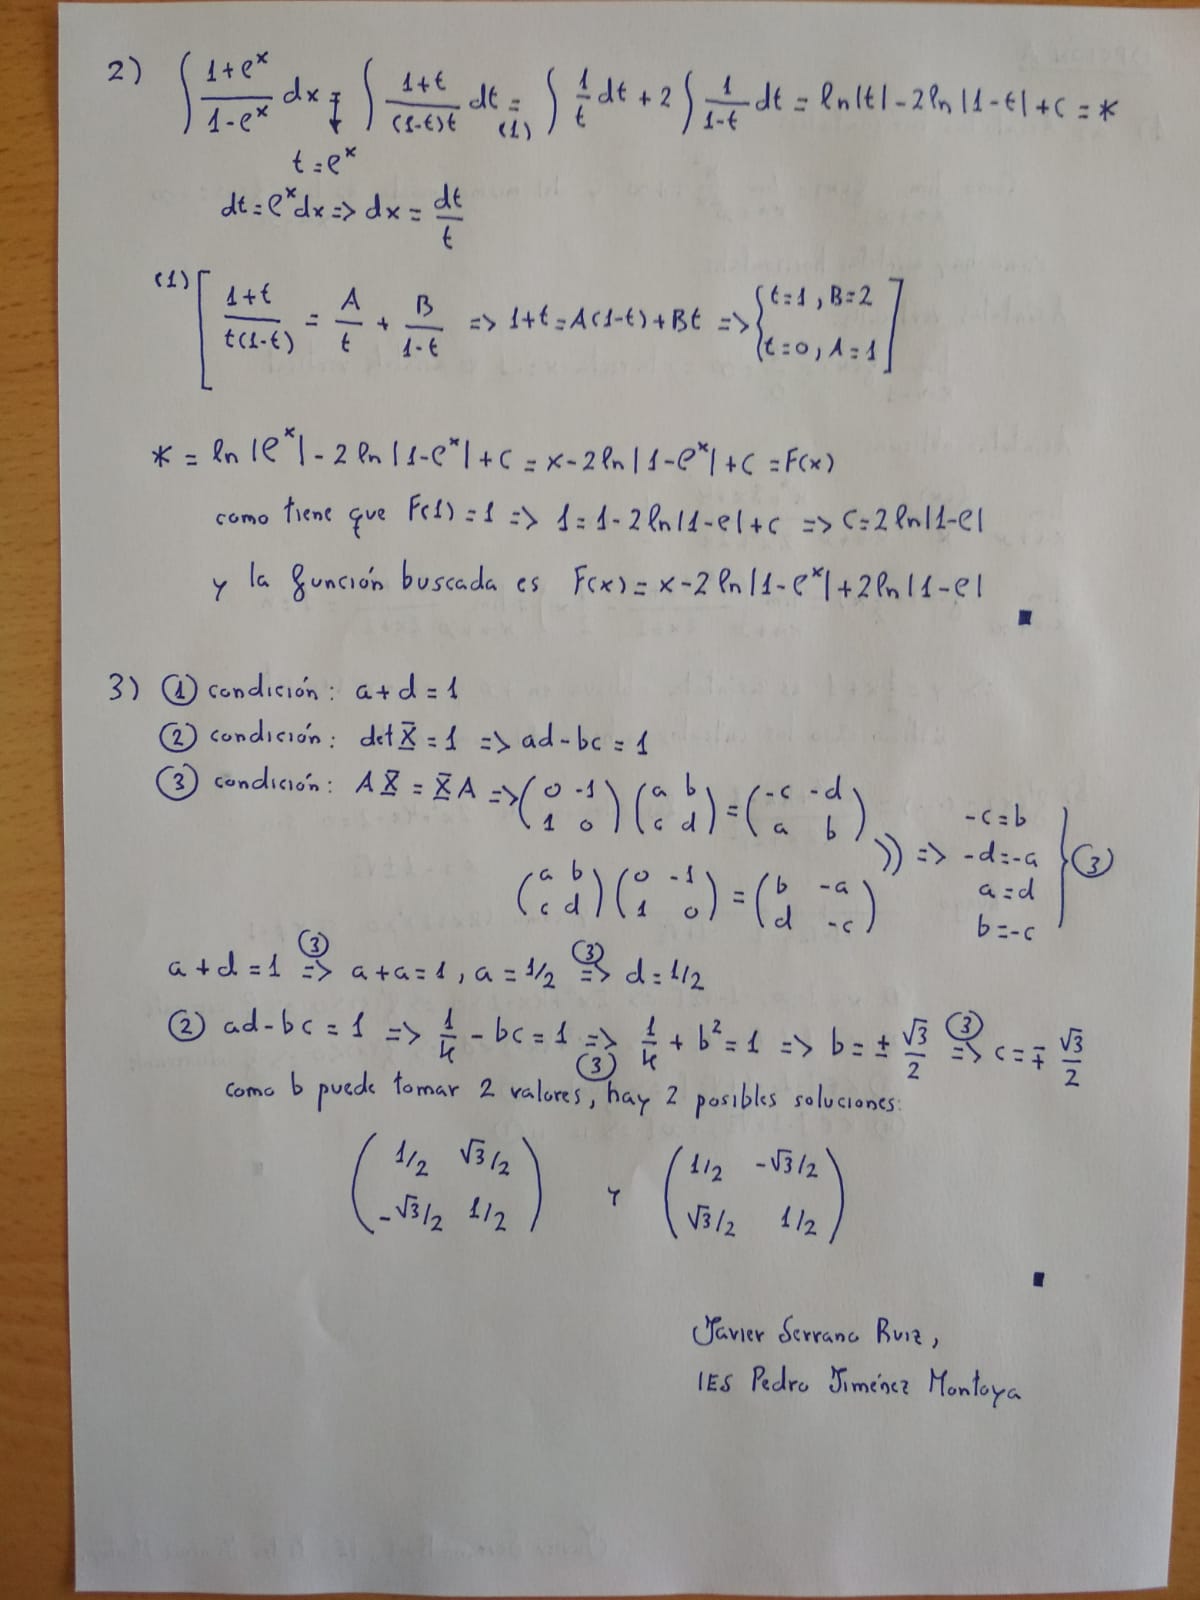 2) ∫ (1+e^x)/(1-e^x) dx = ∫ (1+t)/((1-t)t) dt =(1) ∫ 1/t dt + 2 ∫ 1/(1-t) dt = ln|t| - 2 ln|1-t| + C = *
t = e^x
dt = e^x dx => dx = dt/t
(1) [ (1+t)/(t(1-t)) = A/t + B/(1-t) => 1+t = A(1-t) + Bt => { t=1, B=2
t=0, A=1 ]
* = ln|e^x| - 2 ln|1-e^x| + C = x - 2 ln|1-e^x| + C = F(x)
como tiene que F(1) = 1 => 1 = 1 - 2 ln|1-e| + C => C = 2 ln|1-e|
y la función buscada es F(x) = x - 2 ln|1-e^x| + 2 ln|1-e|
3) ① condición: a+d = 1
② condición: det X = 1 => ad-bc = 1
③ condición: AX = XA => (0 -1; 1 0) (a b; c d) = (-c -d; a b)
(a b; c d) (0 -1; 1 0) = (b -a; d -c)
=> -c = b
-d = -a
a = d
b = -c } ③
a+d = 1 =>③ a+a = 1, a = 1/2 =>③ d = 1/2
② ad-bc = 1 => 1/4 - bc = 1 =>③ 1/4 + b² = 1 => b = ± √3/2 =>③ c = ∓ √3/2
como b puede tomar 2 valores, hay 2 posibles soluciones:
(1/2 √3/2; -√3/2 1/2) y (1/2 -√3/2; √3/2 1/2)
Javier Serrano Ruiz,
IES Pedro Jiménez Montoya